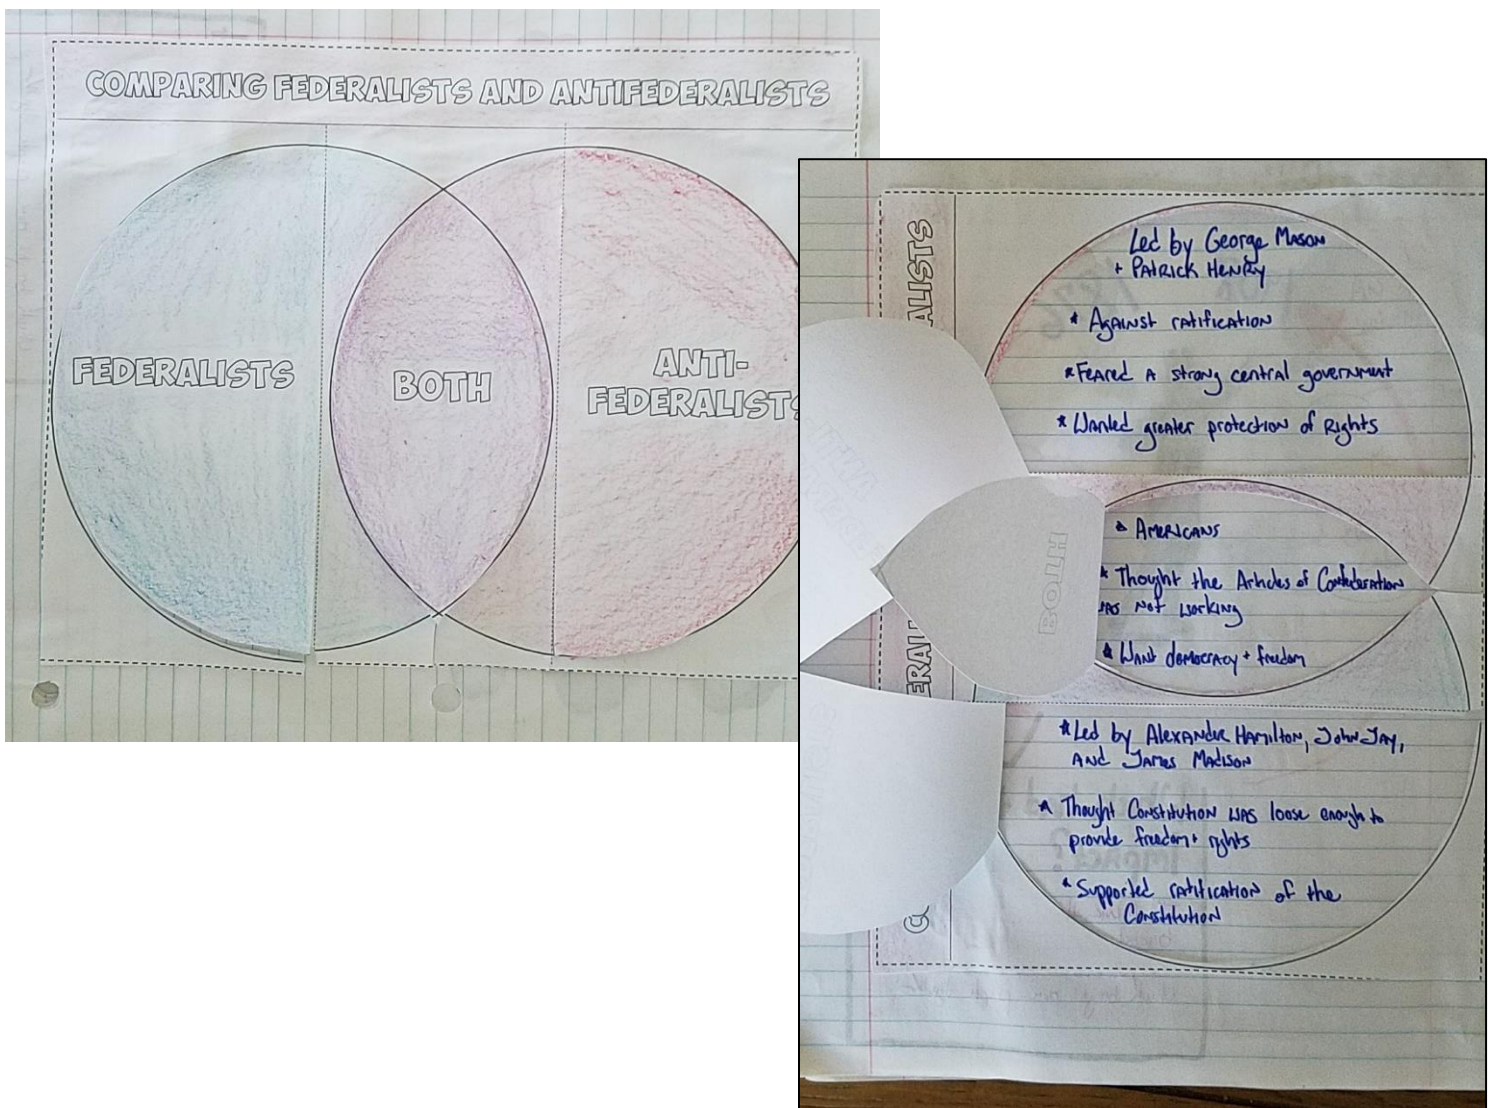 COMPARING FEDERALISTS AND ANTIFEDERALISTS
FEDERALISTS
BOTH
ANTI-
FEDERALISTS
ALISTS
Led by George Mason
+ Patrick Henry
* Against ratification
* Feared a strong central government
* Wanted greater protection of Rights
BOTH
* Americans
* Thought the Articles of Confederation
was not working
* Want democracy + freedom
ERAL
* Led by Alexander Hamilton, John Jay,
And James Madison
* Thought Constitution was loose enough to
provide freedom + rights
* Supported ratification of the
Constitution